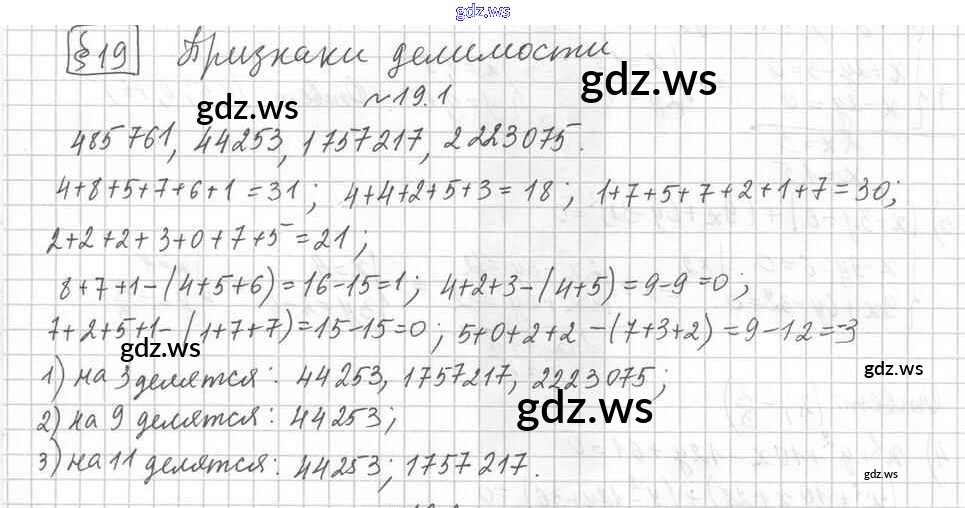 gdz.ws
§19 Признаки делимости
gdz.ws
gdz.ws
~19.1
485761, 44253, 1757217, 2223075.
4+8+5+7+6+1=31; 4+4+2+5+3=18; 1+7+5+7+2+1+7=30;
2+2+2+3+0+7+5=21;
8+7+1-(4+5+6)=16-15=1; 4+2+3-(4+5)=9-9=0;
7+2+5+1-(1+7+7)=15-15=0; 5+0+2+2-(7+3+2)=9-12=-3
gdz.ws
1) на 3 делятся: 44253, 1757217, 2223075;
gdz.ws
gdz.ws
2) на 9 делятся: 44253;
3) на 11 делятся: 44253; 1757217.
gdz.ws